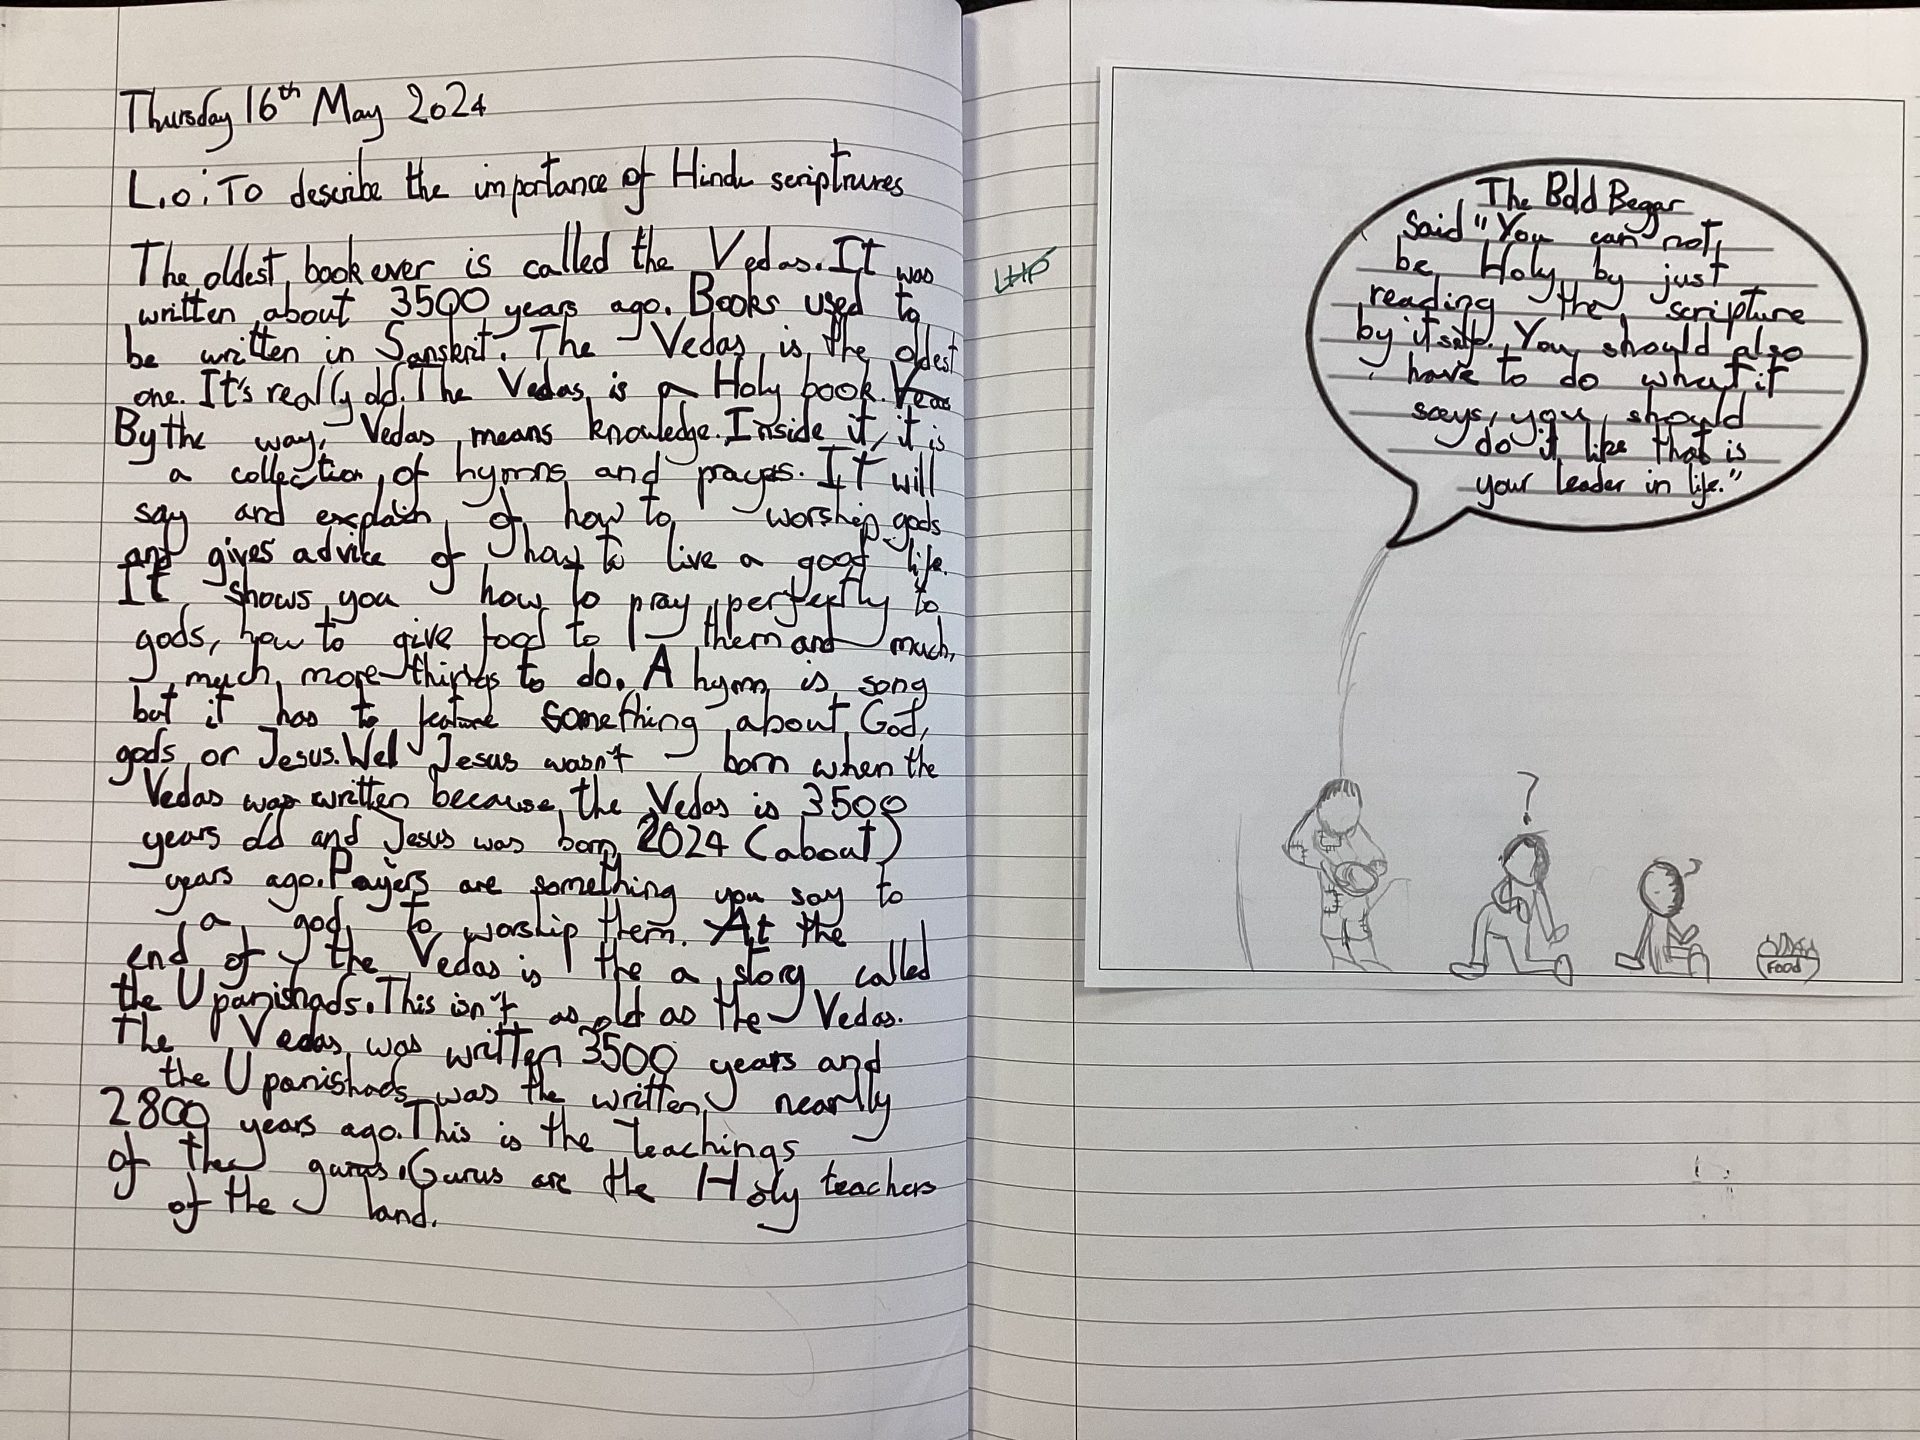 Thursday 16th May 2024
L.o: To describe the importance of Hindu scriptrures
The oldest book ever is called the Vedas. It was
written about 3500 years ago. Books used to
be written in Sanskrit. The Vedas is the oldest
one. It's really old. The Vedas is a Holy book.
By the way, Vedas means knowledge. Inside it, it is
a collection of hymns and prayers. It will
say and explain of how to worship gods
and gives advice of how to live a good life.
It shows you how to pray perfectly to
gods, how to give food to them and much,
much more things to do. A hymn is song
but it has to feature something about God,
gods or Jesus. Well Jesus wasn't born when the
Vedas was written because the Vedas is 3500
years old and Jesus was born 2024 (about)
years ago. Payers are something you say to
a god to worship them. At the
end of the Vedas is the a story called
the Upanishads. This isn't as old as the Vedas.
The Vedas was written 3500 years and
the Upanishads was the written nearlly
2800 years ago. This is the teachings
of the gurus. Gurus are the Holy teachers
of the land.
The Bold Begar
said "You can not
be Holy by just
reading the scripture
by itself. You should also
have to do what it
says, you should
do it like that is
your leader in life."
?
?
Food